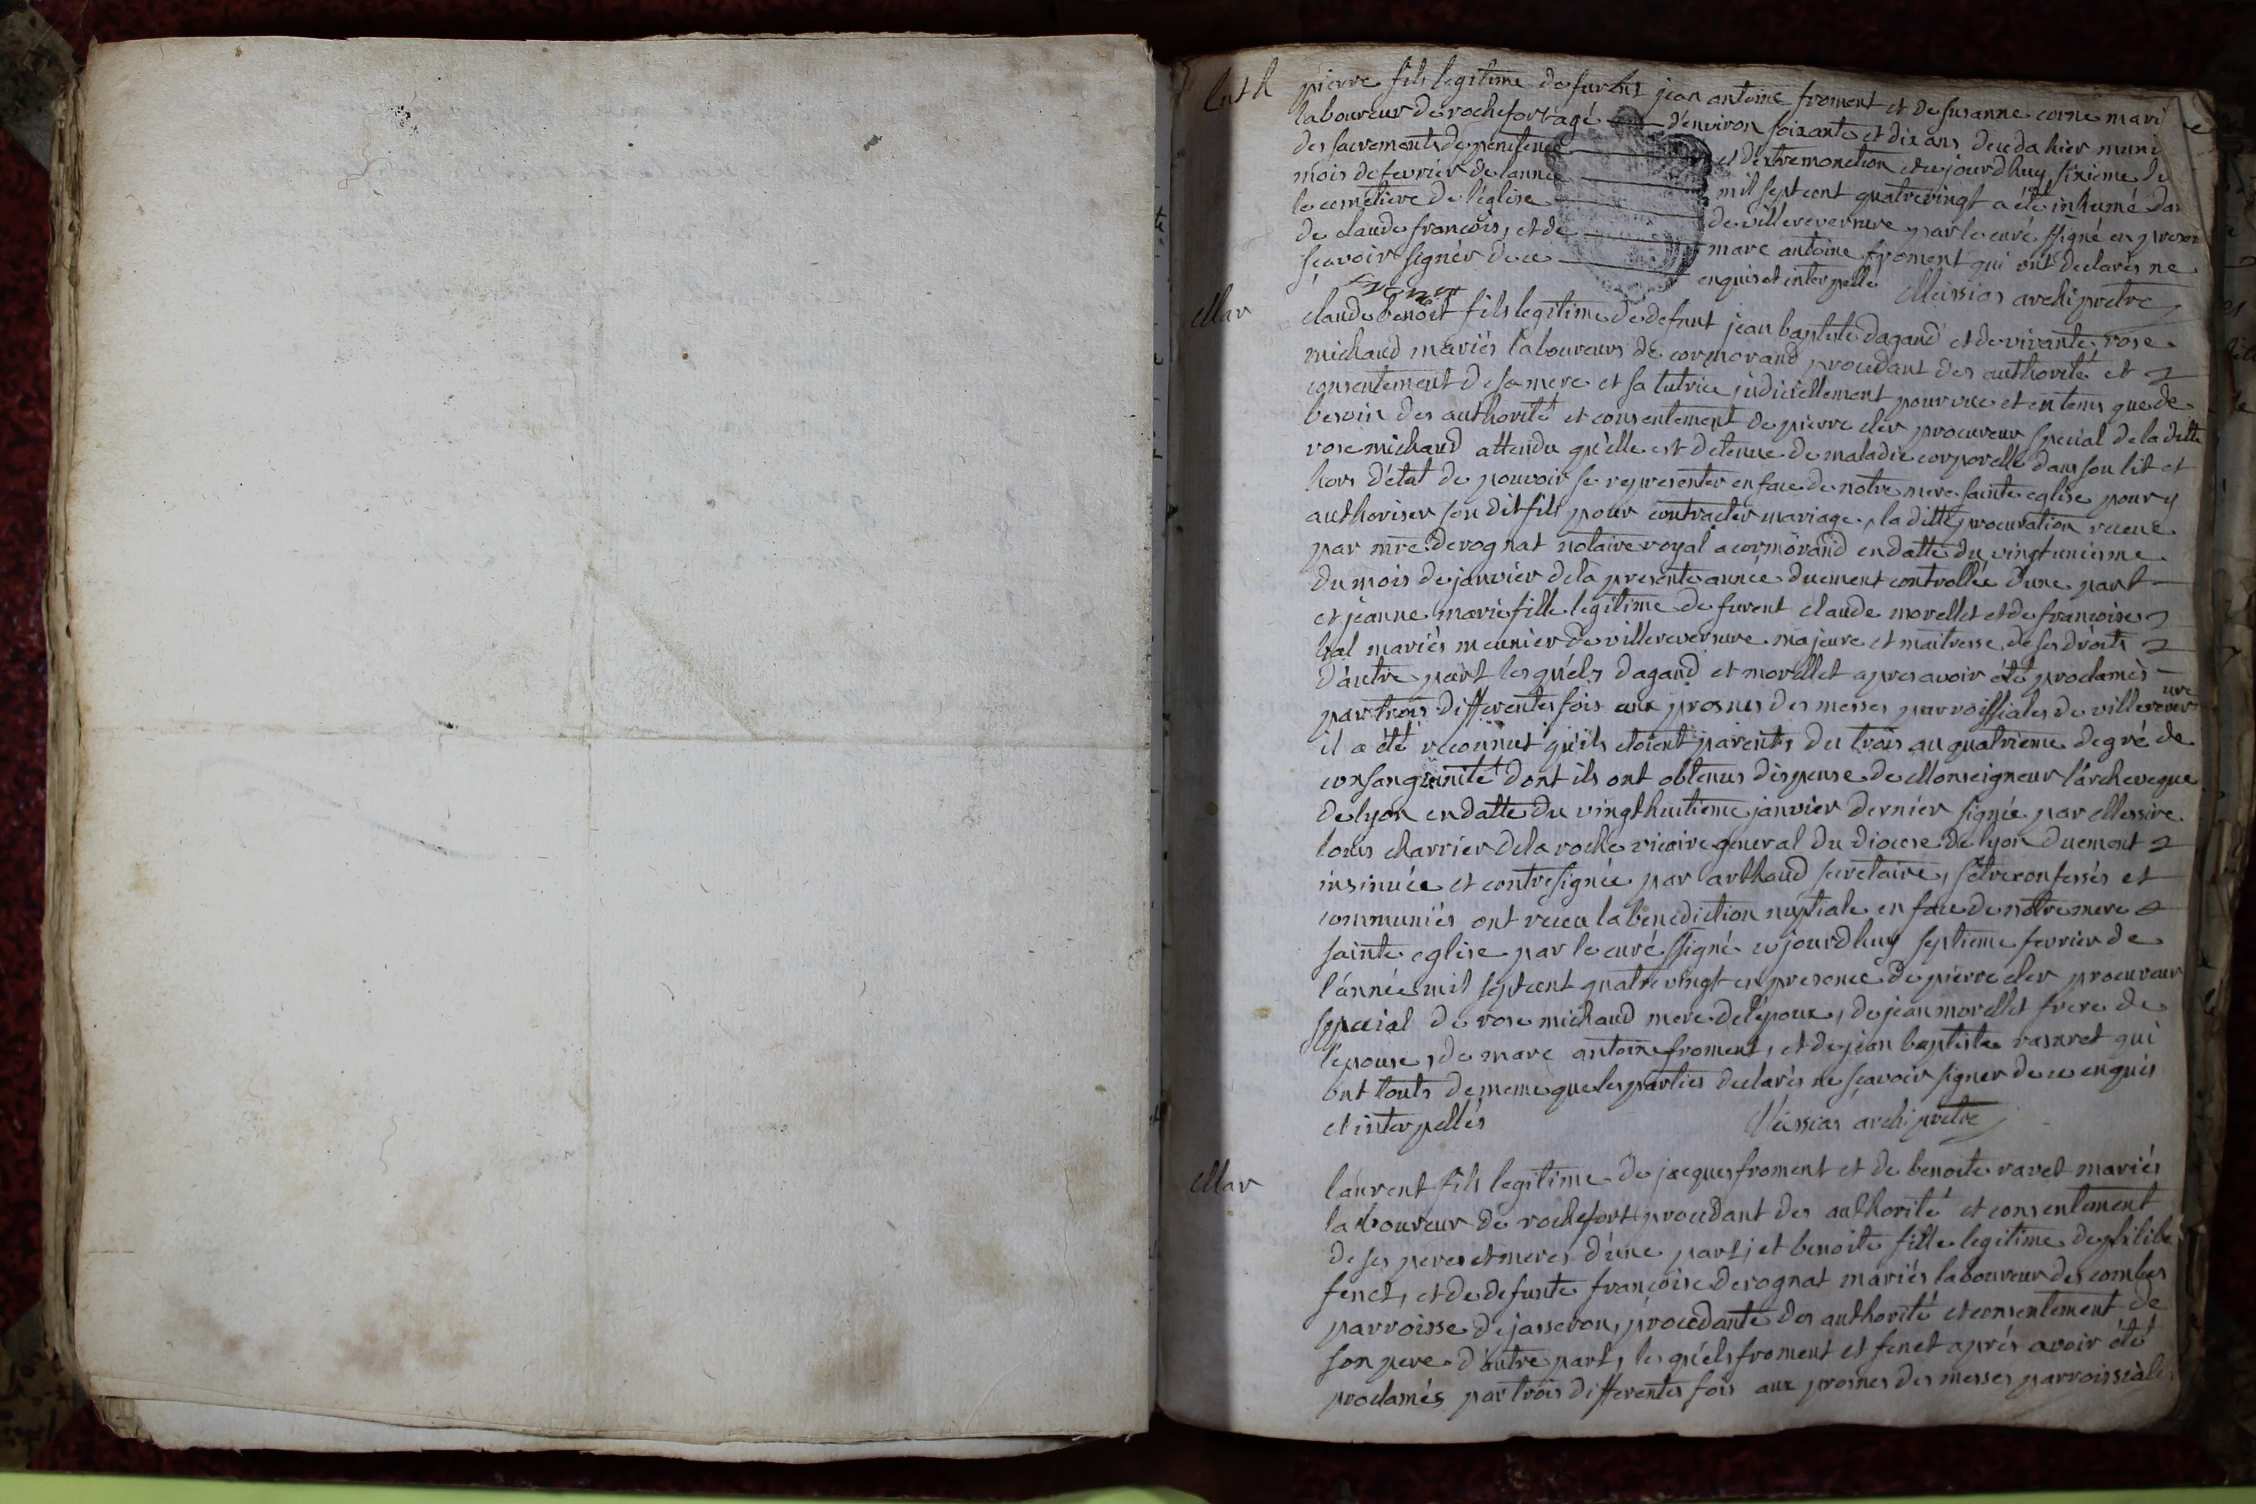 Ent h
pierre fils legitime de furent jean antoine froment et de susanne corne mari
laboureur de rochefort agé d'environ soixante et dix ans deceda hier muni
des sacrements de penitence et d'extremonction et cejourdhuy sixieme de
mois de fevrier de lannee mil sept cent quatrevingt a été inhumé dan
le cemetiere de l'église de villereversure par le curé ssigné en presen
de claude francois, et de marc antoine froment qui ont declarés ne
sçavoir signer de ce enquis et interpellé Meissias archipretre
Mar
claude benoit fils legitime de defunt jean baptiste dagand et de vivante rose
michaud mariés laboureurs de cormorand procedant des authorité et
consentement de sa mere et sa tutrice judiciellement pourvue et en tems que de
besoin des authorité et consentement de pierre cler procureur special de la ditte
rose michaud attendu qu'elle est detenue de maladie corporelle dans son lit et
hors d'état de pouvoir se representer en face de notre mere sainte eglise pour y
authoriser son dit fils pour contracter mariage, la ditte procuration receue
par mre derognat notaire royal a cormorand en datte du vingtunieme
du mois de janvier de la presente année duement controllée d'une part
et jeanne marie fille legitime de furent claude morellet et de francoise
bal mariés meunier de villereversure majeure et maitresse de ses droits
d'autre part lesquels dagand et morellet apres avoir été proclamés
par trois differentes fois aux prosnes des messes parroissiales de villereversure
il a été reconnut qu'ils etoient parents du trois au quatrieme degré de
consanguinité dont ils ont obtenus dispense de Monseigneur l'archeveque
de lyon en datte du vingthuitieme janvier dernier signée par Messire
louis charrier de la roche vicaire general du diocese de lyon duement
insinuée et contresignée par arthaud secretaire, s'etre confessés et
communiés ont receu la benediction nuptiale en face de notre mere
sainte eglise par le curé ssigné cejourdhuy septieme fevrier de
l'année mil sept cent quatrevingt en presence de pierre cler procureur
special de rose michaud mere de l'epoux, de jean morellet frere de
l'epouse, de marc antoine froment, et de jean baptiste rasuret qui
ont touts de meme que les parties declarés ne sçavoir signer de ce enquis
et interpellés Meissias archipretre
Mar
laurent fils legitime de jacques froment et de benoite ravet mariés
laboureur de rochefort procedant des authorité et consentement
de ses peres et meres d'une part, et benoite fille legitime de philibe
fenet, et de defunte francoise derognat mariés laboureur des combes
parroisse de jasseron, procedante des authorité et consentement de
son pere d'autre part, lesquels froment et fenet aprés avoir été
proclamés par trois differentes fois aux prosnes des messes parroissiales